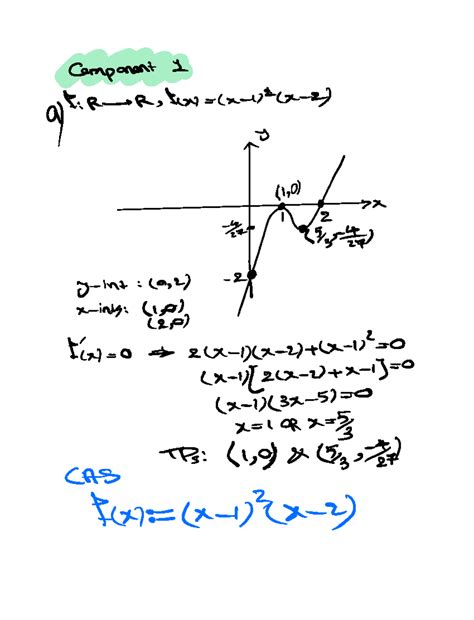 Component 1
a) f: R → R, f(x) = (x-1)²(x-2)
y
(1,0)
x
1
2
-4/27
(5/3, -4/27)
-2
y-int : (0,2)
x-ints: (1,0)
(2,0)
f'(x) = 0 ⇒ 2(x-1)(x-2)+(x-1)²=0
(x-1)[2(x-2)+x-1]=0
(x-1)(3x-5)=0
x=1 OR x=5/3
TPs: (1,0) & (5/3, -4/27)
CAS
f(x):=(x-1)²(x-2)